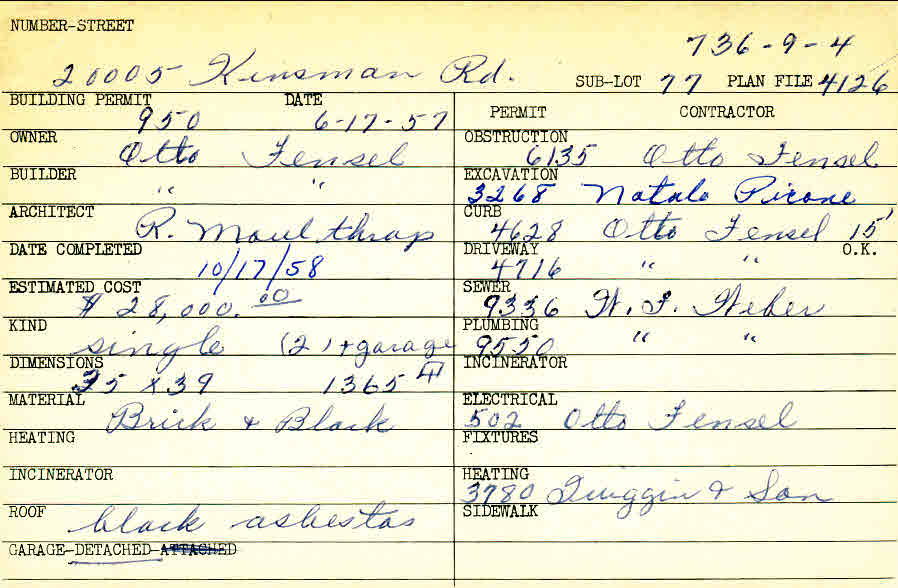 NUMBER-STREET
736-9-4
20005 Kinsman Rd. SUB-LOT 77 PLAN FILE 4126
BUILDING PERMIT DATE
950 6-17-57
OWNER
Otto Fensel
BUILDER
" "
ARCHITECT
R. Moulthrop
DATE COMPLETED
10/17/58
ESTIMATED COST
$ 28,000.00
KIND
single (2) + garage
DIMENSIONS
35 x 39 1365
MATERIAL
Brick + Block
HEATING
INCINERATOR
ROOF
black asbestos
GARAGE-DETACHED-ATTACHED
PERMIT CONTRACTOR
OBSTRUCTION
6135 Otto Fensel
EXCAVATION
3268 Natale Pirone
CURB
4628 Otto Fensel 15'
DRIVEWAY O.K.
4716 " "
SEWER
9336 W. F. Weber
PLUMBING
9550 " "
INCINERATOR
ELECTRICAL
502 Otto Fensel
FIXTURES
HEATING
3780 & Son
SIDEWALK